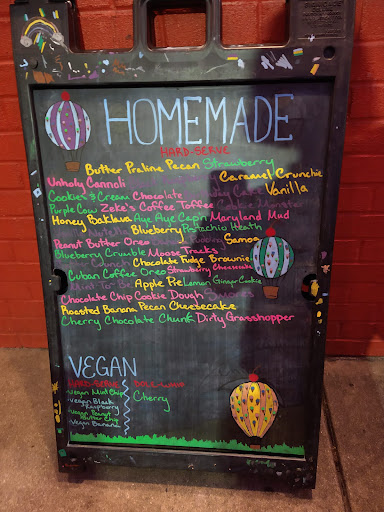 HOMEMADE
HARD-SERVE
Butter Praline Pecan Strawberry
Unholy Cannoli Caramel Crunchie
Cookies & Cream Chocolate Vanilla
Purple Cow Zeke's Coffee Toffee
Honey Baklava Aye Aye Cap'n Maryland Mud
Blueberry Pistachio Heath
Peanut Butter Oreo Samoa
Blueberry Crumble Moose Tracks
Chocolate Fudge Brownie
Cuban Coffee Oreo Strawberry Cheesecake
Apple Pie Lemon Ginger Cookie
Chocolate Chip Cookie Dough
Roasted Banana Pecan Cheesecake
Cherry Chocolate Chunk Dirty Grasshopper
VEGAN
HARD-SERVE
-Vegan Mint Chip
-Vegan Black Raspberry
-Vegan Peanut Butter Chip
-Vegan Banana
Cherry